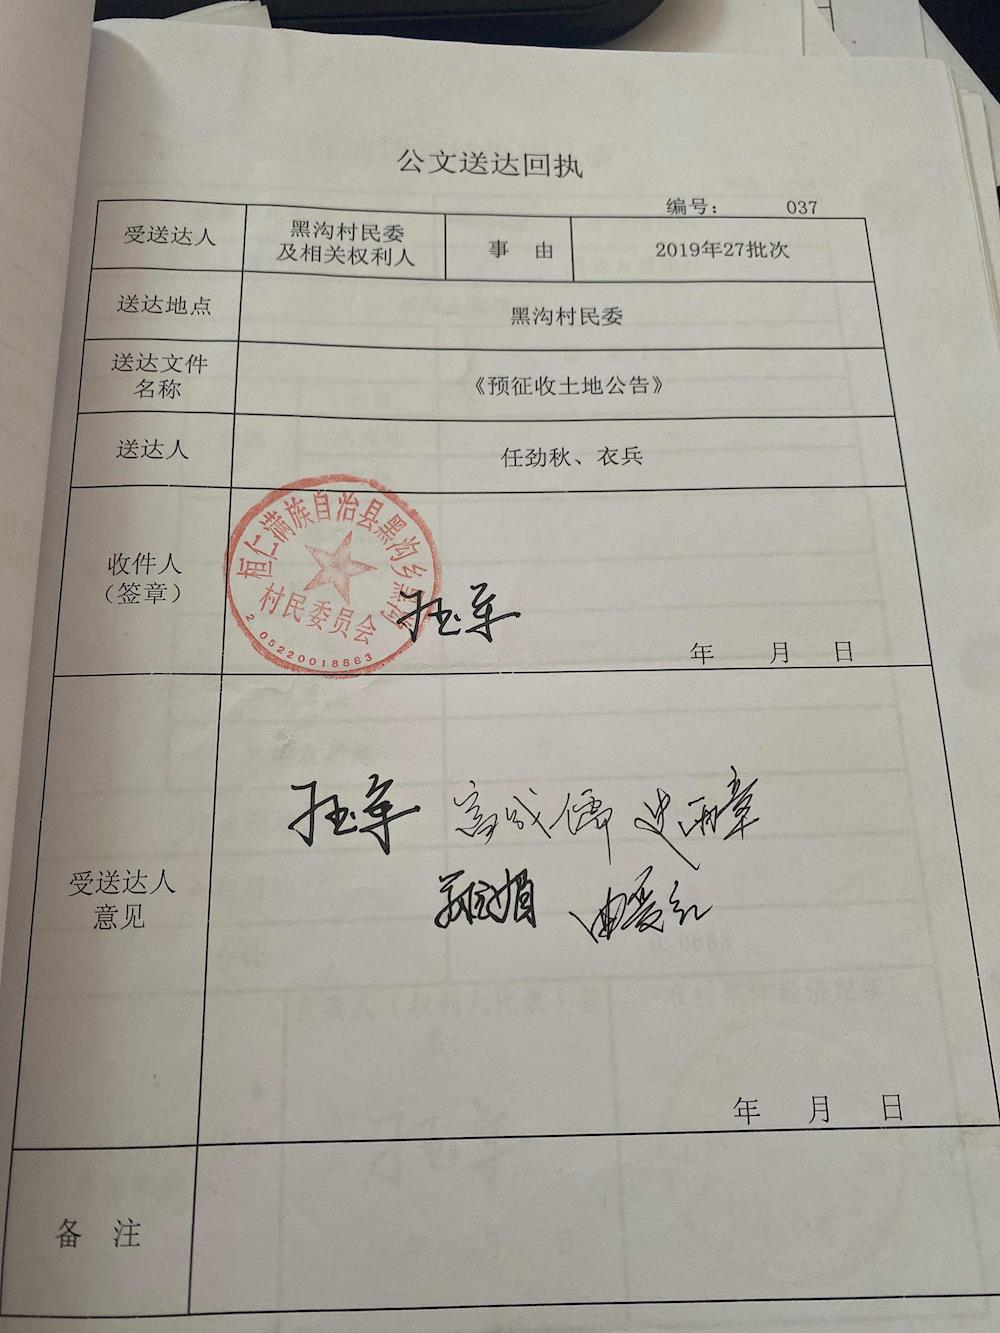 公文送达回执
编号： 037
受送达人
黑沟村民委
及相关权利人
事 由
2019年27批次
送达地点
黑沟村民委
送达文件
名称
《预征收土地公告》
送达人
任劲秋、衣兵
收件人
（签章）
桓仁满族自治县黑沟乡黑沟
村民委员会
05220018883
年 月 日
受送达人
意见
曲爱红
年 月 日
备 注